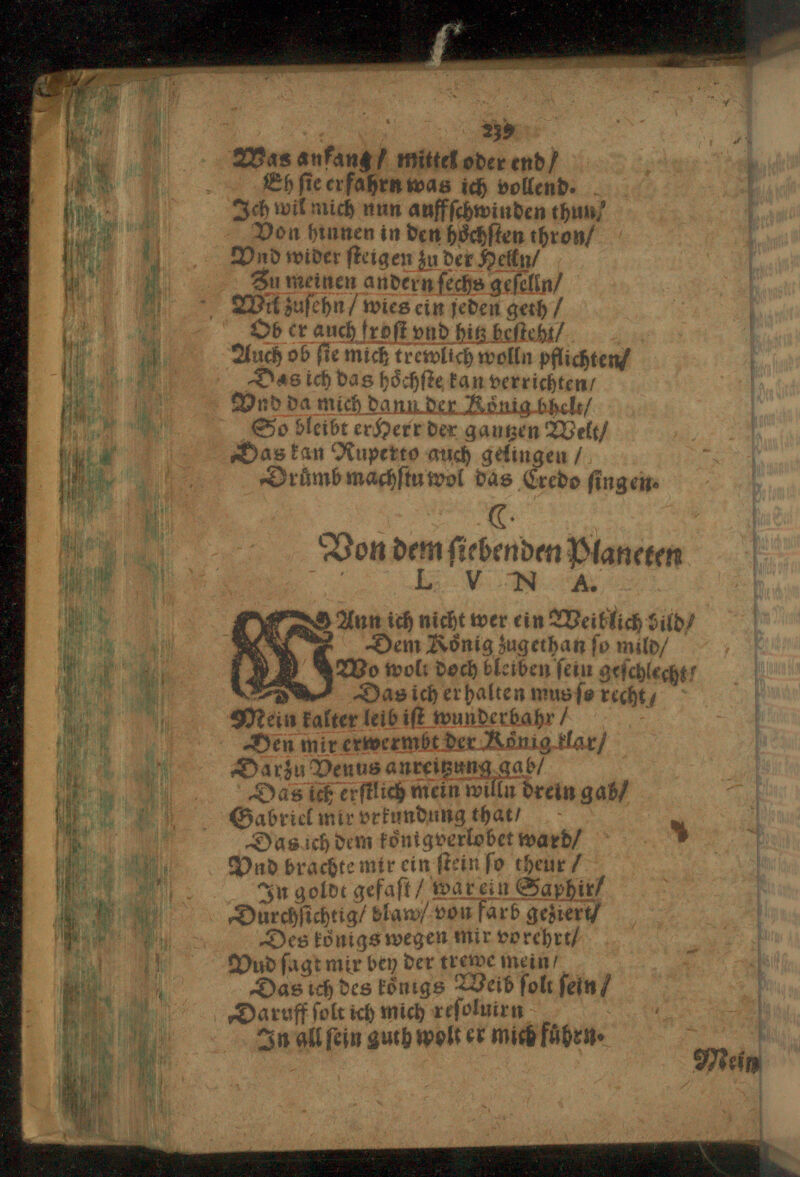 239
Was anfang / mittel oder end /
Eh ſie erfahrn was ich vollend.
Ich wil mich nun auffſchwinden thun /
Von hinnen in den hoͤchſten thron /
Vnd wider ſteigen zu der Helln /
Zu meinen andern ſechs geſelln /
Wil zuſehn / wies ein jeden geth /
Ob er auch froſt vnd hitz beſteht /
Auch ob ſie mich trewlich wolln pflichten /
Das ich das hoͤchſte kan verrichten /
Vnd da mich dann der Koͤnig bhelt /
So bleibt er Herr der gantzen Welt /
Das kan Ruperto auch gelingen /
Druͤmb machſtu wol das Credo ſingen.
C.
Von dem ſiebenden Planeten
L V N A.
NUn ich nicht wer ein Weiblich bild /
Dem Koͤnig zugethan ſo mild /
Wo wolt doch bleiben ſein geſchlecht /
Das ich erhalten mus ſo recht /
Mein kalter leib iſt wunderbahr /
Den mir erwermbt der Koͤnig klar /
Darzu Venus anreitzung gab /
Das ich erſtlich mein willn drein gab /
Gabriel mir vrkundung that /
Das ich dem koͤnig verlobet ward /
Vnd brachte mir ein ſtein ſo theur /
In goldt gefaſt / war ein Saphir /
Durchſichtig / blaw / von farb geziert /
Des koͤnigs wegen mir vorehrt /
Vnd ſagt mir bey der trewe mein /
Das ich des koͤnigs Weib ſolt ſein /
Daruff ſolt ich mich reſoluirn
In all ſein guth wolt er mich fuͤhrn.
Mein